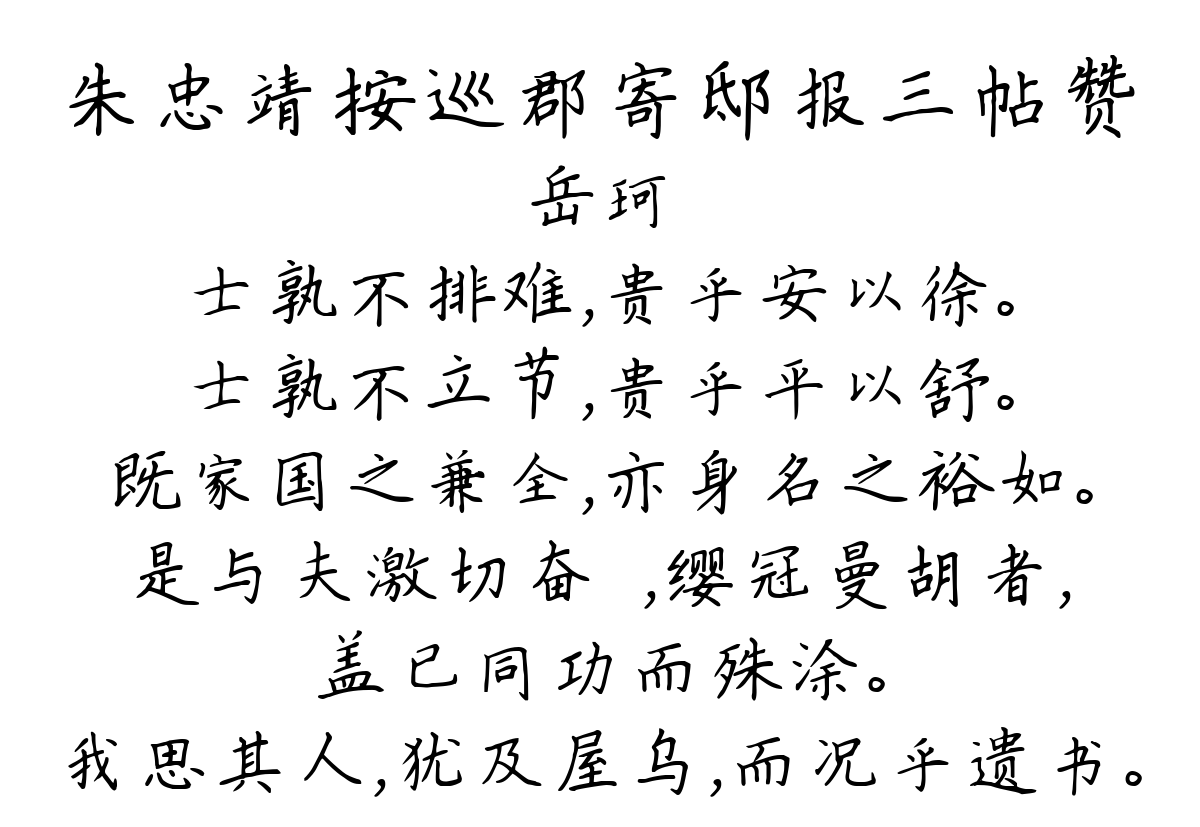 朱忠靖按巡郡寄邸报三帖赞
岳珂
士孰不排难,贵乎安以徐。
士孰不立节,贵乎平以舒。
既家国之兼全,亦身名之裕如。
是与夫激切奋 ,缨冠曼胡者,
盖已同功而殊涂。
我思其人,犹及屋乌,而况乎遗书。